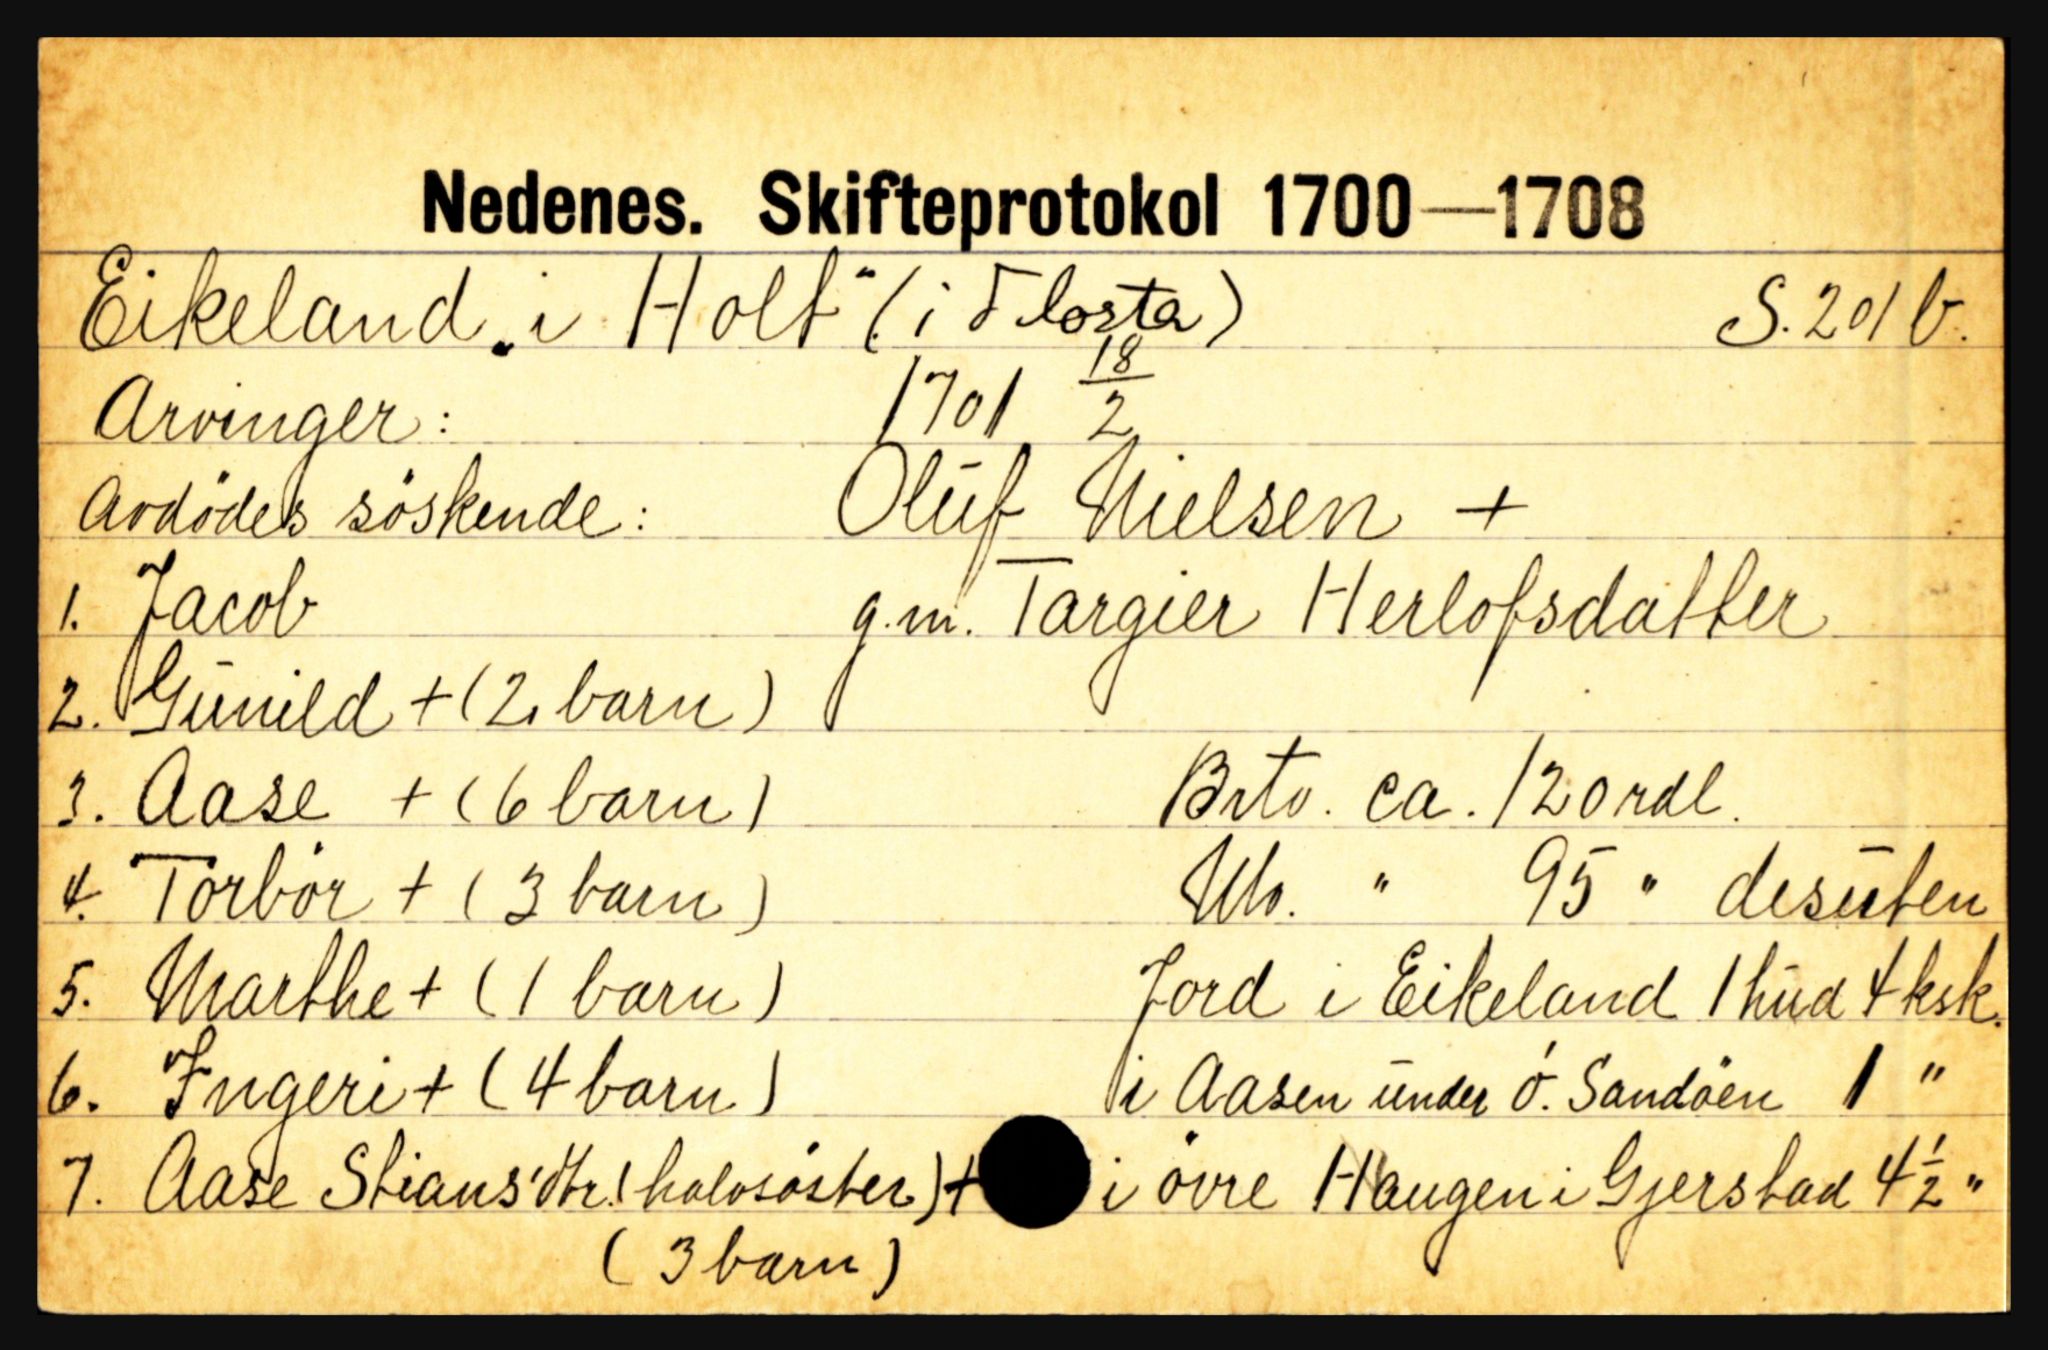 Nedenes. Skifteprotokol 1700—1708
Eikeland „i Holt" (i Flosta) S. 201 b.
Arvinger: 1701 18/2
Avdödes söskende: Oluf Nielsen +
1. Jacob g.m. Targier Herlofsdatter
2. Gunild + (2 barn)
3. Aase + (6 barn) Brto. ca. 120 rdl.
4. Torbör + (3 barn) Nto. " 95 " desuten
5. Marthe + (1 barn) Jord i Eikeland 1 hud 4 ksk.
6. Ingeri + (4 barn) i Aasen under ö. Sandöen 1 "
7. Aase Stians'dtr. (halvsöster) + i övre Haugen i Gjerstad 4 1/2 "
(3 barn)